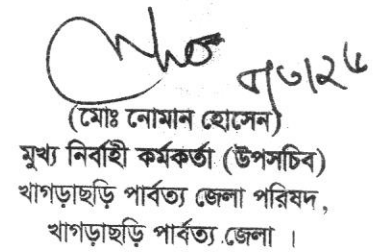 (মোঃ নোমান হোসেন)
মুখ্য নির্বাহী কর্মকর্তা (উপসচিব)
খাগড়াছড়ি পার্বত্য জেলা পরিষদ,
খাগড়াছড়ি পার্বত্য জেলা ।